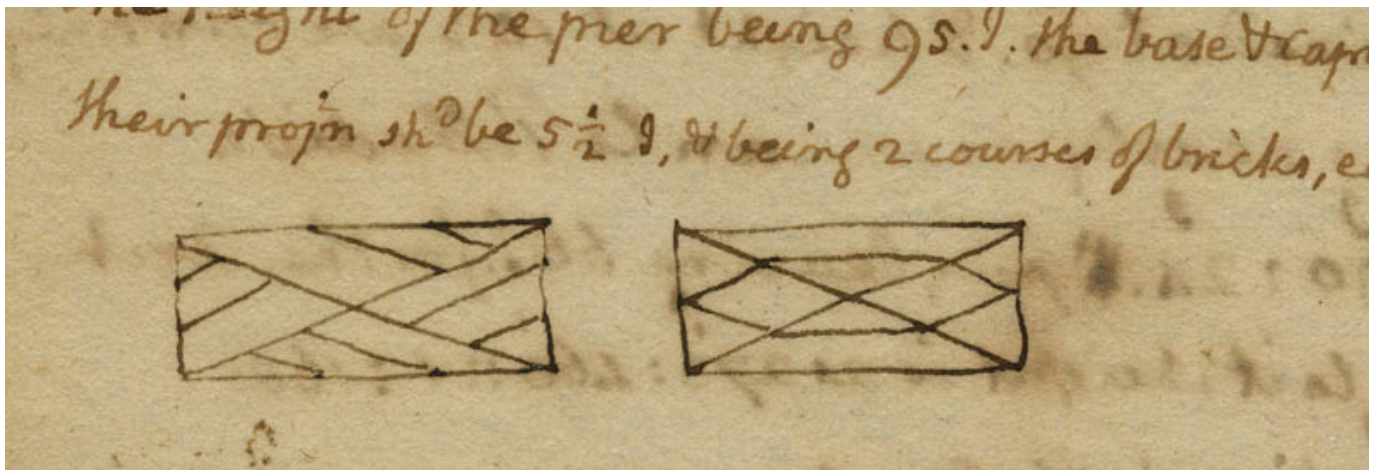 height of the pier being 95. I. the base & cap
their projn shd be 5 1/2 I, & being 2 courses of bricks, e